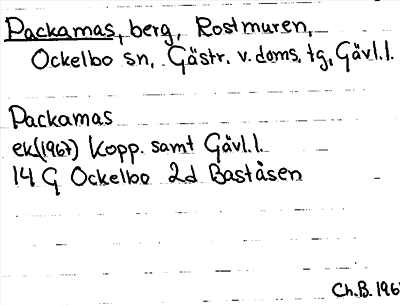 Packamas, berg, Rostmuren,
Ockelbo sn, Gästr. v. doms. tg, Gävl.l.
Packamas
ek(1967) Kopp. samt Gävl.l.
14 G Ockelbo 2d Baståsen
Ch.B. 196